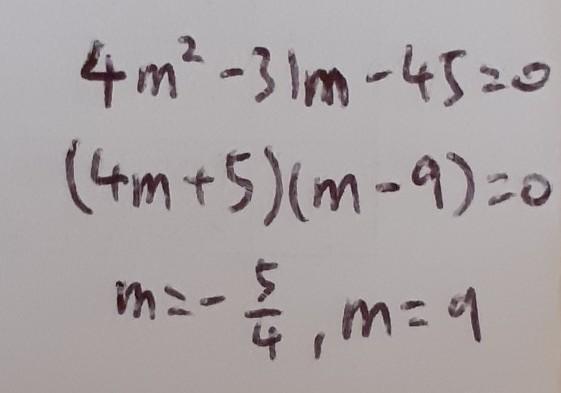 4m² - 31m - 45 = 0
(4m + 5)(m - 9) = 0
m = - 5/4 , m = 9